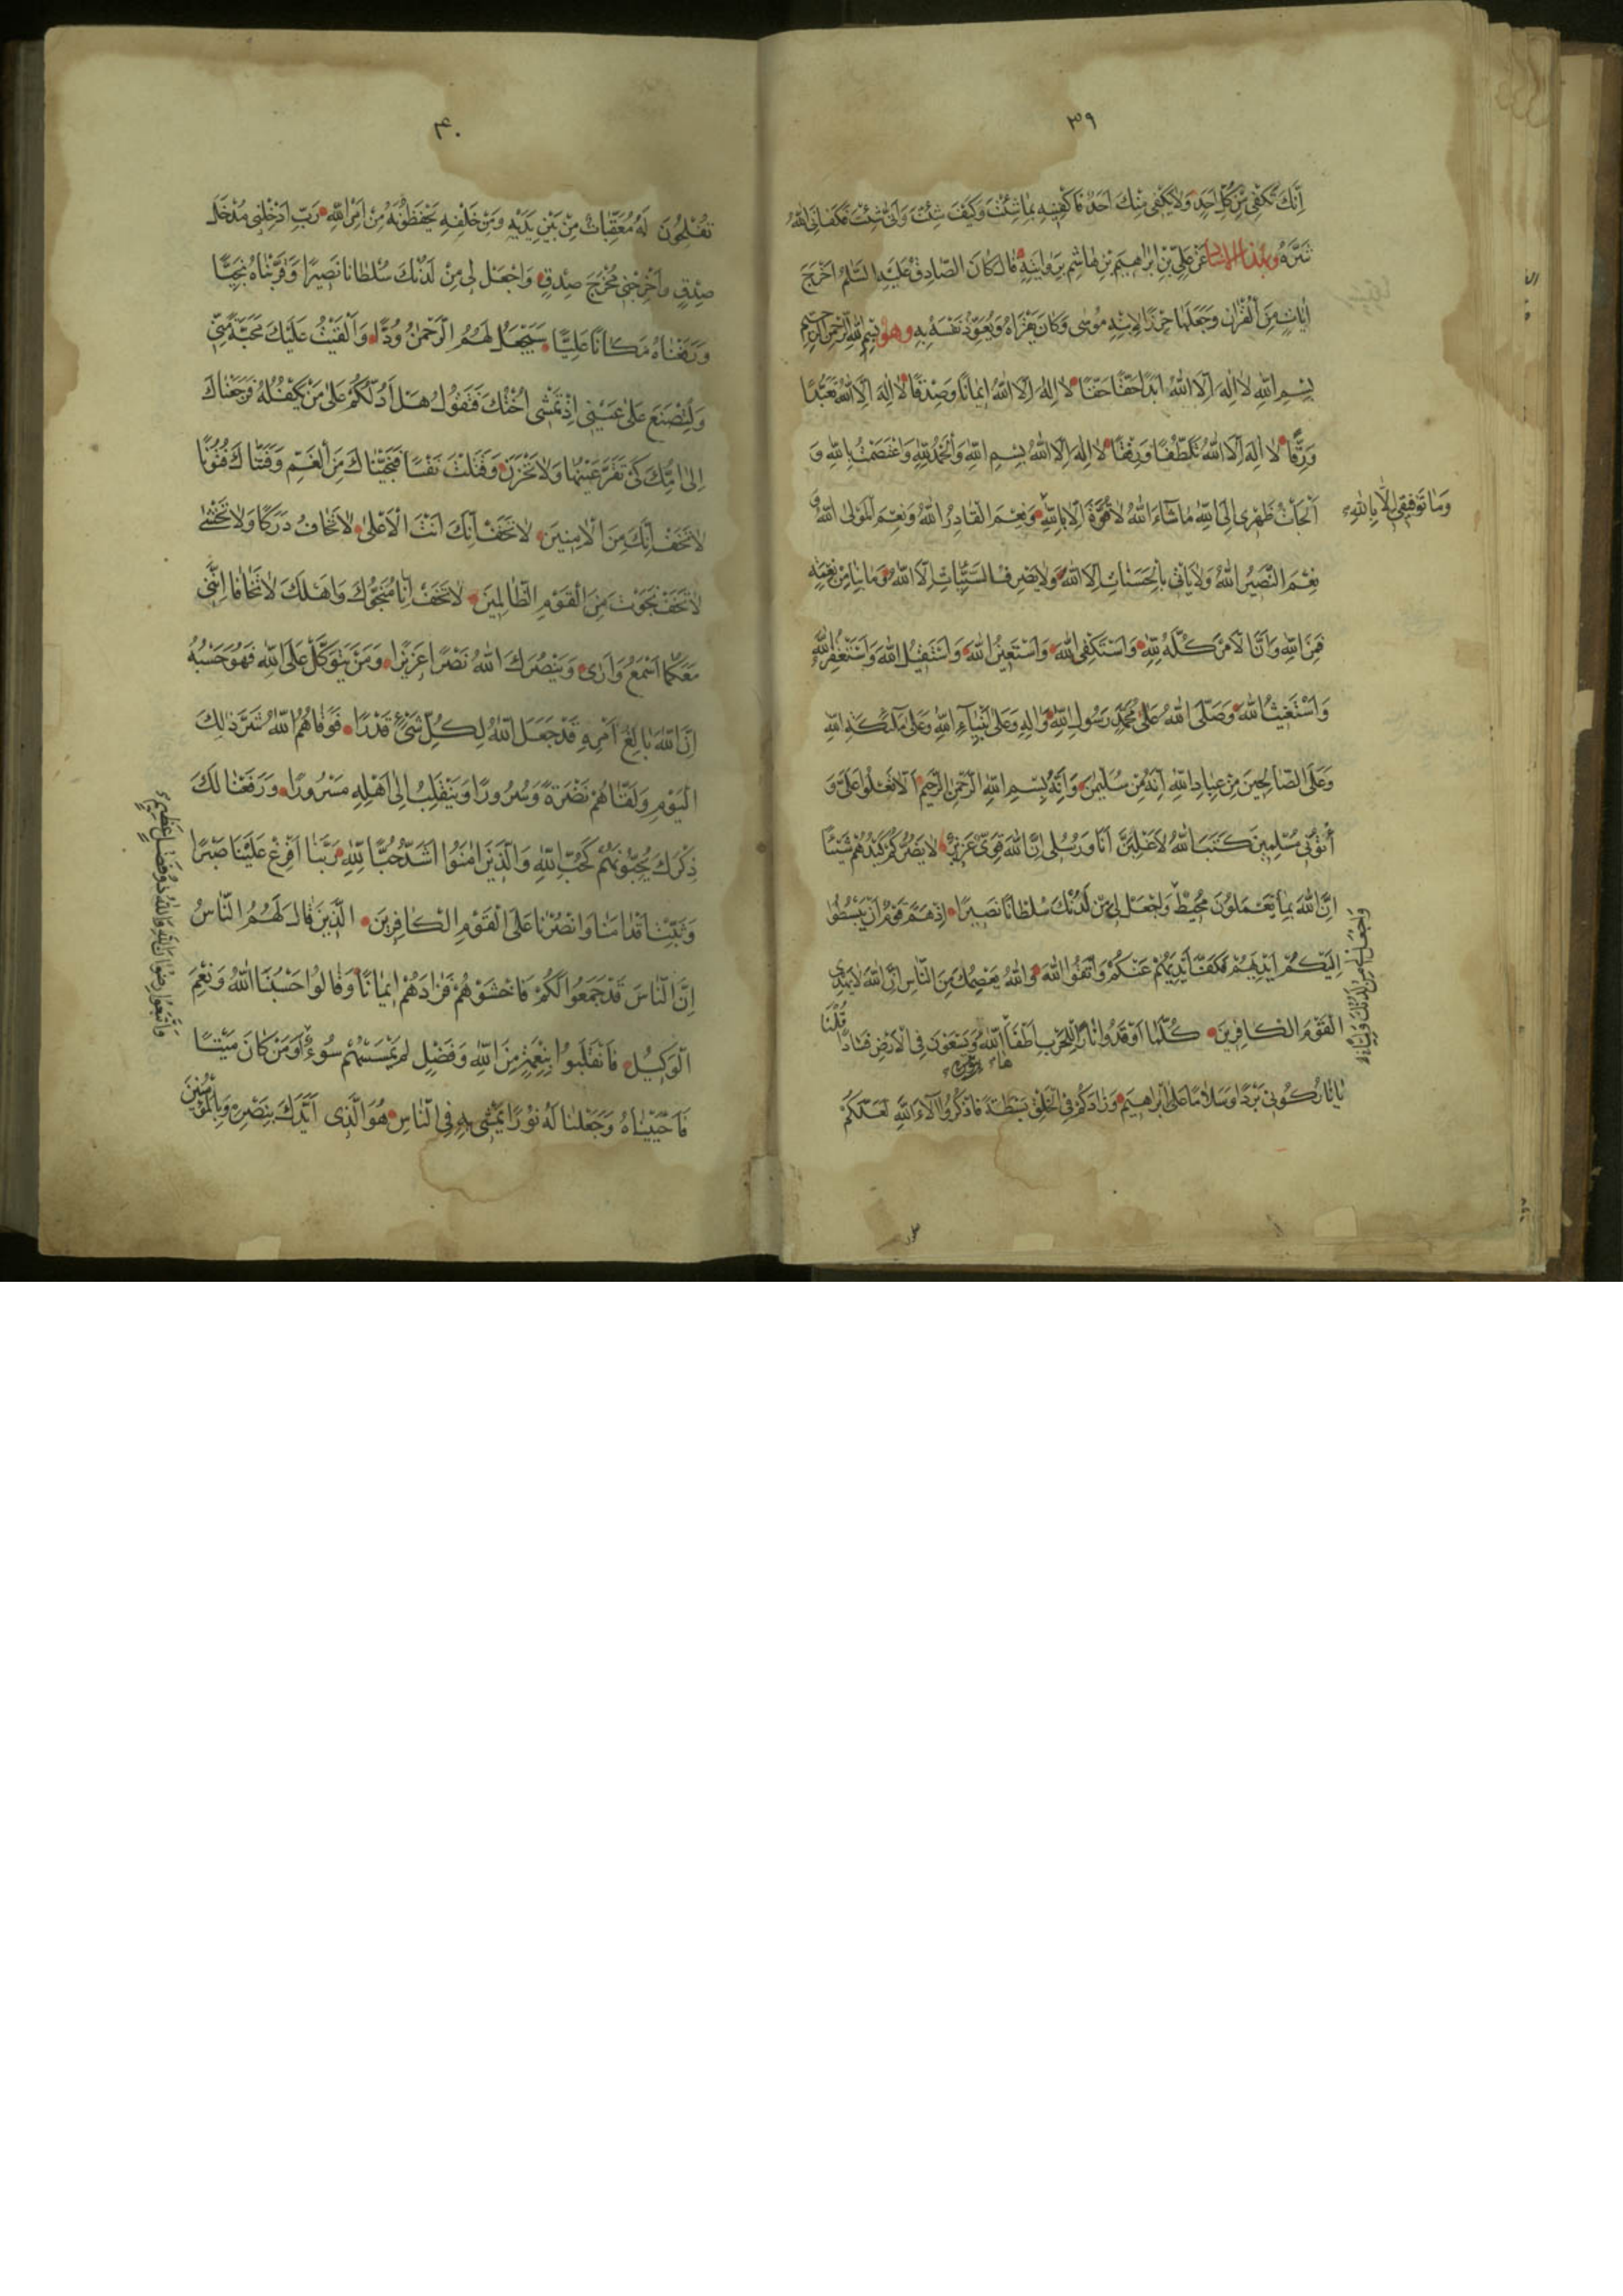 ٣٩
اِنَّكَ تَكْفِي مِنْ كُلِّ اَحَدٍ وَلَا يَكْفِي مِنْكَ اَحَدٌ فَاكْفِنِيهِ بِمَا شِئْتَ وَكَيْفَ شِئْتَ وَاَنّٰى شِئْتَ فَكَفَانِي اللّٰهُ
شَرَّهُ وبهذا الاسناد عَنْ عَلِيِّ بْنِ اِبْرَاهِيمَ بْنِ هَاشِمٍ يَرْوِيهِ قَالَ كَانَ الصَّادِقُ عَلَيْهِ السَّلَامُ اَخْرَجَ
اٰيَاتٍ مِنَ الْقُرْاٰنِ وَجَعَلَهَا حِرْزًا لِاِبْنِهِ مُوسٰى وَكَانَ يَقْرَاهُ وَيُعَوِّذُ نَفْسَهُ بِهِ وهو بِسْمِ اللّٰهِ الرَّحْمٰنِ الرَّحِيمِ
بِسْمِ اللّٰهِ لَا اِلٰهَ اِلَّا اللّٰهُ اَبَدًا حَقًّا حَقًّا لَا اِلٰهَ اِلَّا اللّٰهُ اِيمَانًا وَصِدْقًا لَا اِلٰهَ اِلَّا اللّٰهُ تَعَبُّدًا
وَرِقًّا لَا اِلٰهَ اِلَّا اللّٰهُ تَلَطُّفًا وَرِفْقًا لَا اِلٰهَ اِلَّا اللّٰهُ بِسْمِ اللّٰهِ وَالْحَمْدُ لِلّٰهِ وَاعْتَصَمْتُ بِاللّٰهِ وَ
اَلْجَأْتُ ظَهْرِي اِلَى اللّٰهِ مَا شَاءَ اللّٰهُ لَا قُوَّةَ اِلَّا بِاللّٰهِ وَنِعْمَ الْقَادِرُ اللّٰهُ وَنِعْمَ الْمَوْلَى اللّٰهُ وَ
وَمَا تَوْفِيقِي اِلَّا بِاللّٰهِ
نِعْمَ النَّصِيرُ اللّٰهُ وَلَا يَأْتِي بِالْحَسَنَاتِ اِلَّا اللّٰهُ وَلَا يَصْرِفُ السَّيِّئَاتِ اِلَّا اللّٰهُ وَمَا بِنَا مِنْ نِعْمَةٍ
فَمِنَ اللّٰهِ وَاَنَّ الْاَمْرَ كُلَّهُ لِلّٰهِ وَاَسْتَكْفِي اللّٰهَ وَاَسْتَعِينُ اللّٰهَ وَاَسْتَقِيلُ اللّٰهَ وَاَسْتَغْفِرُ اللّٰهَ
وَاَسْتَغِيثُ اللّٰهَ وَصَلَّى اللّٰهُ عَلٰى مُحَمَّدٍ رَسُولِ اللّٰهِ وَاٰلِهِ وَعَلٰى اَنْبِيَاءِ اللّٰهِ وَعَلٰى مَلٰئِكَةِ اللّٰهِ
وَعَلَى الصَّالِحِينَ مِنْ عِبَادِ اللّٰهِ اِنَّهُ مِنْ سُلَيْمٰنَ وَاِنَّهُ بِسْمِ اللّٰهِ الرَّحْمٰنِ الرَّحِيمِ اَلَّا تَعْلُوا عَلَيَّ وَ
أْتُونِي مُسْلِمِينَ كَتَبَ اللّٰهُ لَاَغْلِبَنَّ اَنَا وَرُسُلِي اِنَّ اللّٰهَ قَوِيٌّ عَزِيزٌ لَا يَضُرُّكُمْ كَيْدُهُمْ شَيْئًا
اِنَّ اللّٰهَ بِمَا يَعْمَلُونَ مُحِيطٌ وَاجْعَلْ لِي مِنْ لَدُنْكَ سُلْطَانًا نَصِيرًا اِذْ هَمَّ قَوْمٌ اَنْ يَبْسُطُوا
اِلَيْكُمْ اَيْدِيَهُمْ فَكَفَّ اَيْدِيَهُمْ عَنْكُمْ وَاتَّقُوا اللّٰهَ وَاللّٰهُ يَعْصِمُكَ مِنَ النَّاسِ اِنَّ اللّٰهَ لَا يَهْدِي
الْقَوْمَ الْكَافِرِينَ كُلَّمَا اَوْقَدُوا نَارًا لِلْحَرْبِ اَطْفَاَ اللّٰهُ وَيَسْعَوْنَ فِي الْاَرْضِ فَسَادًا قُلْنَا
يَا نَارُ كُونِي بَرْدًا وَسَلَامًا عَلٰى اِبْرَاهِيمَ وَزَادَكُمْ فِي الْخَلْقِ بَسْطَةً فَاذْكُرُوا اٰلَاءَ اللّٰهِ لَعَلَّكُمْ
٤٠
تُفْلِحُونَ لَهُ مُعَقِّبَاتٌ مِنْ بَيْنِ يَدَيْهِ وَمِنْ خَلْفِهِ يَحْفَظُونَهُ مِنْ اَمْرِ اللّٰهِ رَبِّ اَدْخِلْنِي مُدْخَلَ
صِدْقٍ وَاَخْرِجْنِي مُخْرَجَ صِدْقٍ وَاجْعَلْ لِي مِنْ لَدُنْكَ سُلْطَانًا نَصِيرًا وَقَرَّبْنَاهُ نَجِيًّا
وَرَفَعْنَاهُ مَكَانًا عَلِيًّا سَيَجْعَلُ لَهُمُ الرَّحْمٰنُ وُدًّا وَاَلْقَيْتُ عَلَيْكَ مَحَبَّةً مِنِّي
وَلِتُصْنَعَ عَلٰى عَيْنِي اِذْ تَمْشِي اُخْتُكَ فَتَقُولُ هَلْ اَدُلُّكُمْ عَلٰى مَنْ يَكْفُلُهُ فَرَجَعْنَاكَ
اِلٰى اُمِّكَ كَيْ تَقَرَّ عَيْنُهَا وَلَا تَحْزَنْ وَقَتَلْتَ نَفْسًا فَنَجَّيْنَاكَ مِنَ الْغَمِّ وَفَتَنَّاكَ فُتُونًا
لَا تَخَفْ اِنَّكَ مِنَ الْاٰمِنِينَ لَا تَخَفْ اِنَّكَ اَنْتَ الْاَعْلٰى لَا تَخَافُ دَرَكًا وَلَا تَخْشٰى
لَا تَخَفْ نَجَوْتَ مِنَ الْقَوْمِ الظَّالِمِينَ لَا تَخَفْ اِنَّا مُنَجُّوكَ وَاَهْلَكَ لَا تَخَافَا اِنَّنِي
مَعَكُمَا اَسْمَعُ وَاَرٰى وَيَنْصُرَكَ اللّٰهُ نَصْرًا عَزِيزًا وَمَنْ يَتَوَكَّلْ عَلَى اللّٰهِ فَهُوَ حَسْبُهُ
اِنَّ اللّٰهَ بَالِغُ اَمْرِهِ قَدْ جَعَلَ اللّٰهُ لِكُلِّ شَيْءٍ قَدْرًا فَوَقَاهُمُ اللّٰهُ شَرَّ ذٰلِكَ
الْيَوْمِ وَلَقَّاهُمْ نَضْرَةً وَسُرُورًا وَيَنْقَلِبُ اِلٰى اَهْلِهِ مَسْرُورًا وَرَفَعْنَا لَكَ
ذِكْرَكَ يُحِبُّونَهُمْ كَحُبِّ اللّٰهِ وَالَّذِينَ اٰمَنُوا اَشَدُّ حُبًّا لِلّٰهِ رَبَّنَا اَفْرِغْ عَلَيْنَا صَبْرًا
وَثَبِّتْ اَقْدَامَنَا وَانْصُرْنَا عَلَى الْقَوْمِ الْكَافِرِينَ الَّذِينَ قَالَ لَهُمُ النَّاسُ
اِنَّ النَّاسَ قَدْ جَمَعُوا لَكُمْ فَاخْشَوْهُمْ فَزَادَهُمْ اِيمَانًا وَقَالُوا حَسْبُنَا اللّٰهُ وَنِعْمَ
الْوَكِيلُ فَانْقَلَبُوا بِنِعْمَةٍ مِنَ اللّٰهِ وَفَضْلٍ لَمْ يَمْسَسْهُمْ سُوءٌ اَوَمَنْ كَانَ مَيْتًا
فَاَحْيَيْنَاهُ وَجَعَلْنَا لَهُ نُورًا يَمْشِي بِهِ فِي النَّاسِ هُوَ الَّذِي اَيَّدَكَ بِنَصْرِهِ وَبِالْمُؤْمِنِينَ
وَاتَّبَعُوا رِضْوَانَ اللّٰهِ وَاللّٰهُ ذُو فَضْلٍ عَظِيمٍ